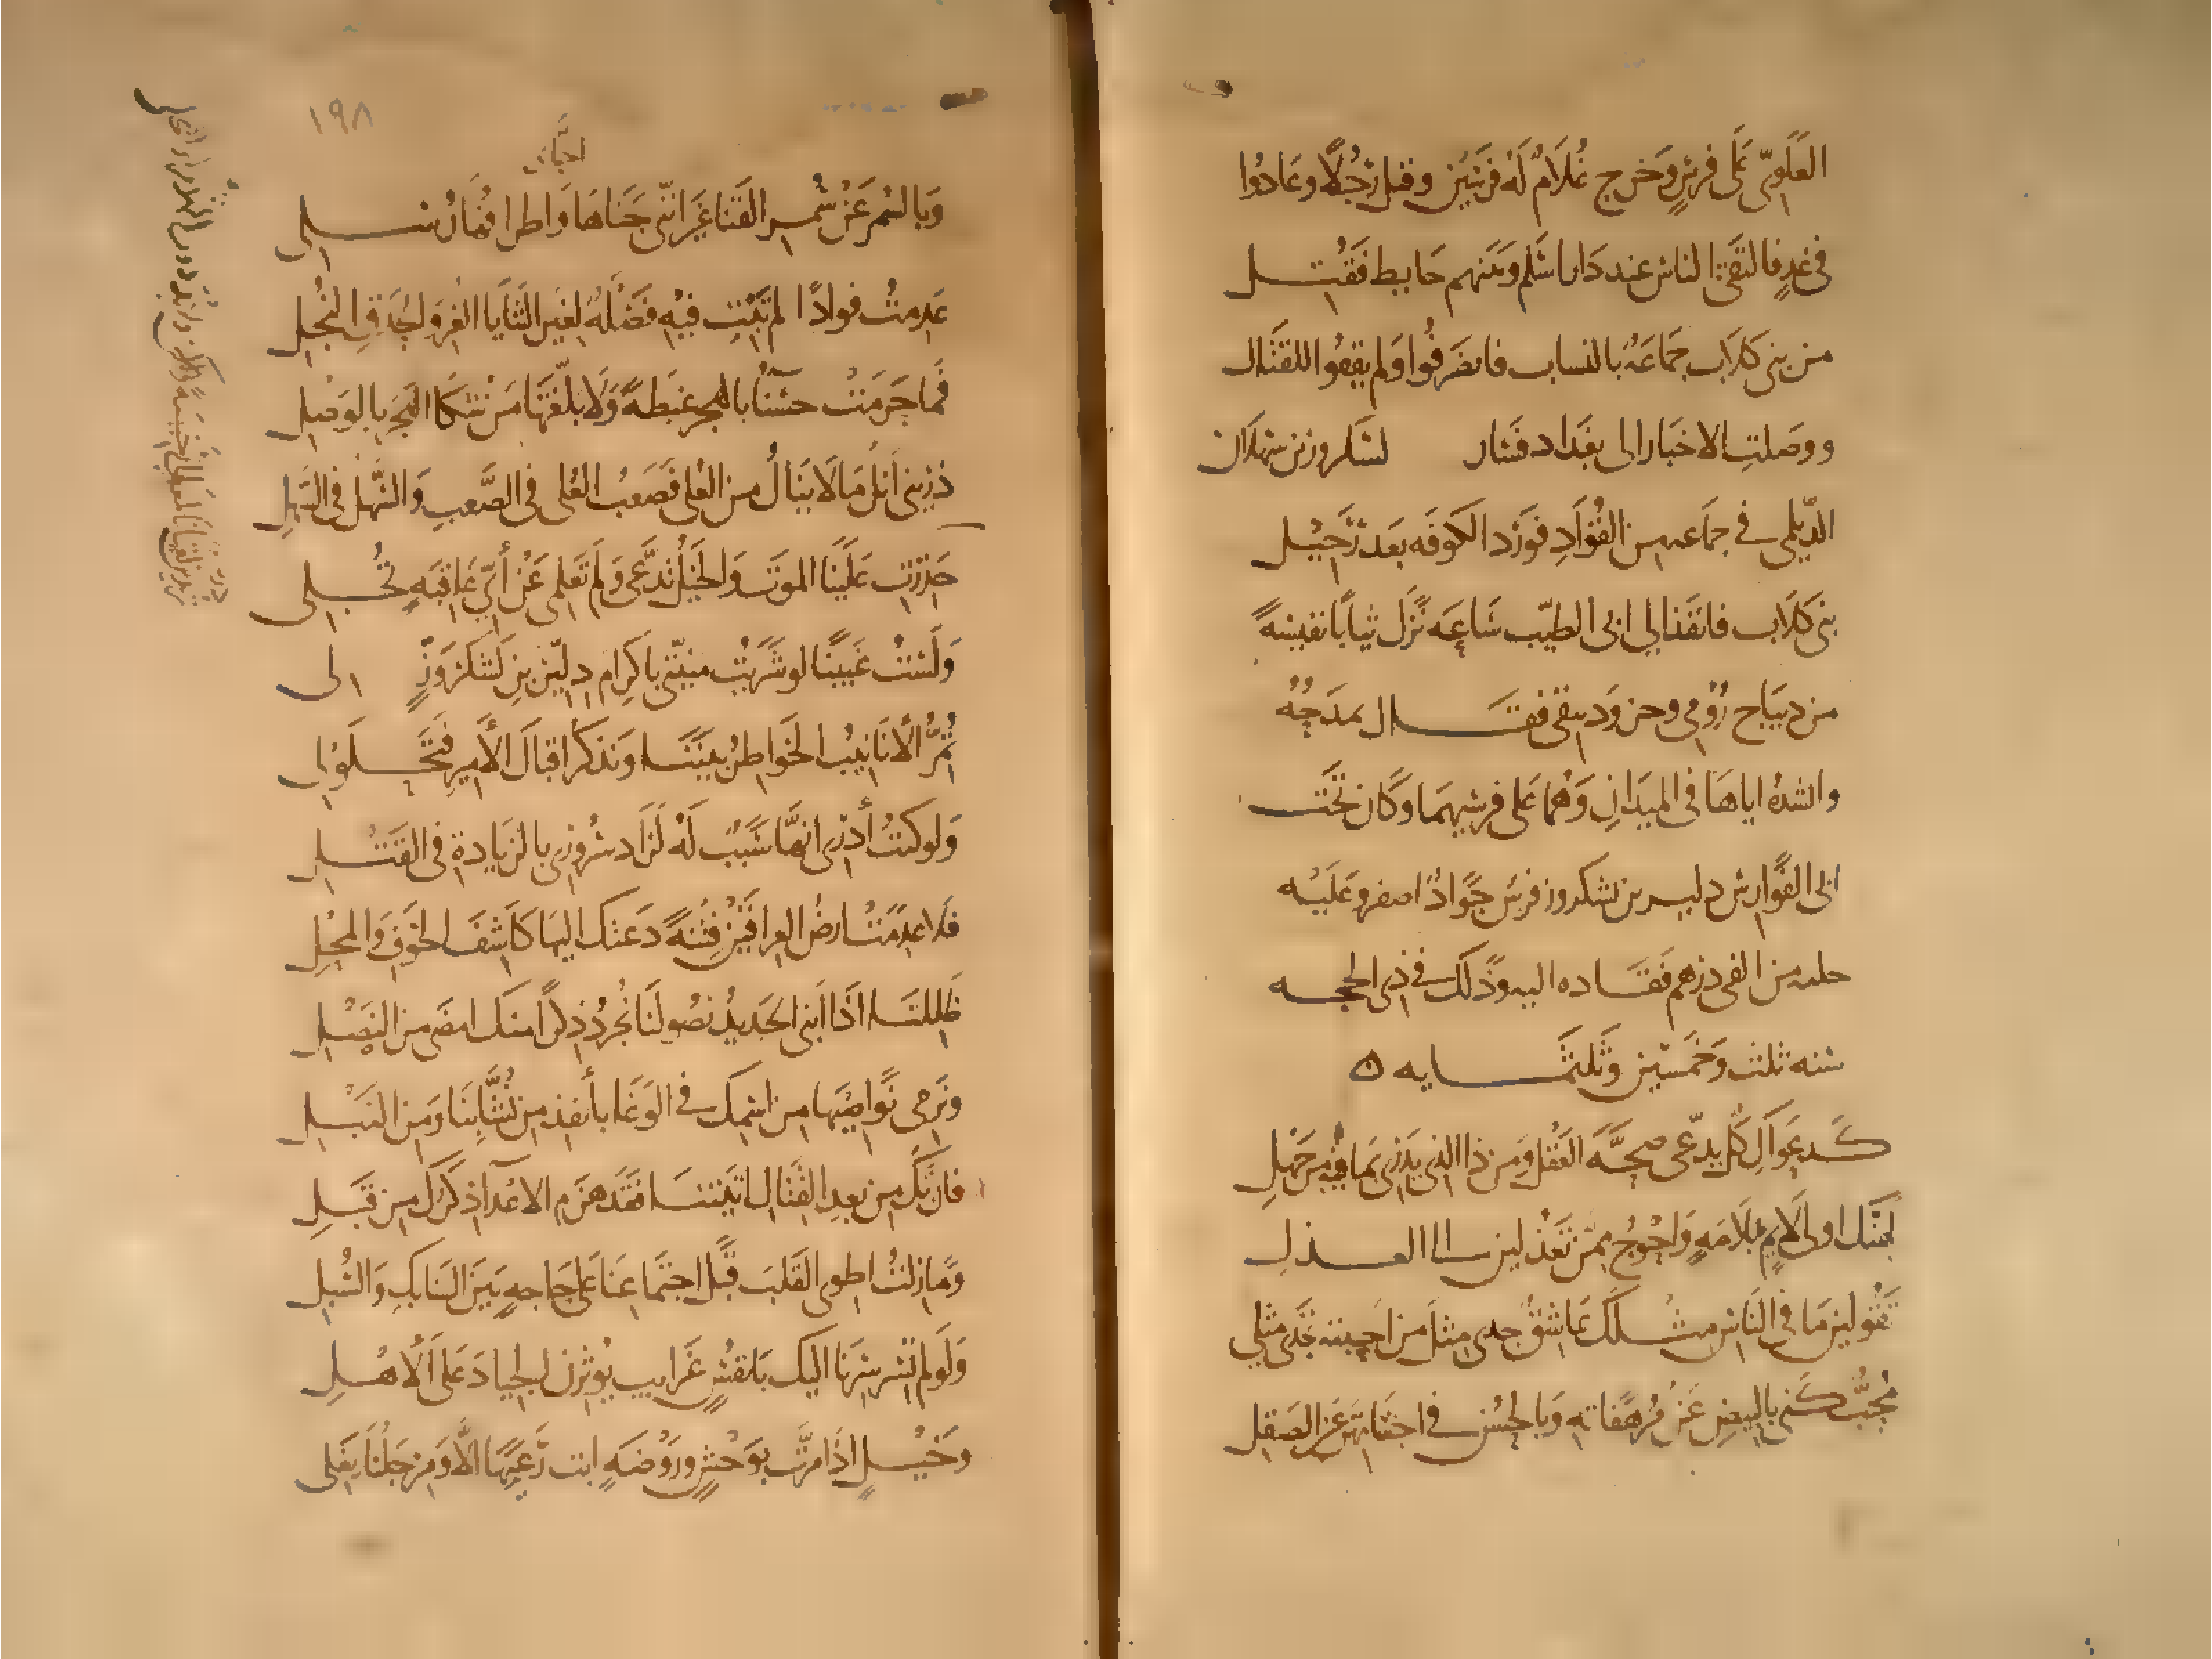 العَلَويّ عَلى فرسٍ وَخرج غُلَامٌ لَهُ فرسَين وقتل رَجُلًا وعَادُوا
في غدٍ فالتقى الناس عند دار اسلم وبينهم حايط فقُتِل
من بنى كلاب جماعَة بالنشاب فانصَرفُوا وَلم يقفوا للقتال
ووصَلتِ الاخبَار الى بغداد فسَار لشكروزبن سهلان
الدّيلمي في جماعه من القُوّادِ فوَرَد الكوفَه بَعدَ رَحيْل
بنى كلَاب فانفَذ الى ابى الطيّب سَاعَة نزَل ثيابًا نفيسَةً
من ديبَاج رُومي وخز وَدبيقى فقال يمدَحُهُ
وانشدهُ اياهَا في الميدَانِ وَهُما عَلى فرسَيهمَا وكان تحت
ابى الفوَارس دلير بن لشكروز فرسٌ جَوادٌ اصفر وعَليْه
حليه من الفى درهم فقاده اليه وذلك في ذى الحجه
سنه ثلث وَخمسين وثلثمايه
كدعوَاكِ كلٌّ يدّعى صحّةَ العَقْلِ وَمن ذا الذي يَدرى بمَا فيهِ من جَهلِ
لهنّكِ اولى لَايمٍ بمَلَامَةٍ وَاحْوجُ ممّن تَعْذُلين الى العذلِ
تقُولين مَا في النَّاس مثلَك عَاشقٌ جدى مثلَ من احببته تجدى مثلي
مُحِبٌّ كَنى بالبيضِ عَنْ مُرهَفَاتِهِ وَبالحسْن في اجسَامهنّ عَن الصَقلِ
١٩٨
احبّاى
وَبالسُمر عَنْ سُمر القَنا غَيرَ انّنى جَنَاهَا احبّاى وَاطرافُهَا رُسلى
عَدِمتُ فوادًا لم تَبِتْ فيْهِ فَضْلَةٌ لغَير الثنَايَا الغُرّ وَالحَدَقِ النُجْلِ
فمَا حَرمَتْ حسْنَاءُ بالهَجر غبطَةً وَلَا بلّغَتْهَا مَنْ شكَا الهَجرَ بالوَصْلِ
ذَرينى أنَلْ مَا لَا يُنَالُ من العُلى فَصَعبُ العُلى في الصَّعبِ وَالسَّهلُ في السَّهلِ
حَذِرْتِ عَلَينَا الموتَ وَالخيلُ تدَّعى وَلم تَعلمى عَن أىِّ عَاقبَةٍ تُجلى
وَلَستُ غَبينًا لو شَرَيْتُ منيّتى باكرامِ دلير بنِ لَشكَروَزٍّ لى
تُمرُّ الأنَابيبُ الخَوَاطرُ بيننَا وَنذكرُ اقبَالَ الأَميرِ فتَحلَولى
وَلو كنتُ أدرى انهَا سَبَبٌ لَهُ لَزَاد سُروُرى بالزيَادةِ في القَتلِ
فلَا عدِمَتْ ارضُ العرَاقَينِ فِتْنَةً دَعَتكَ اليهَا كَاشفَ الخوَفِ وَالمحْلِ
ظَلِلنا اذَا انبى الحَديدُ نصُولنَا نُجرِّدُ ذِكرًا منكَ امضَى من النصْلِ
ونَرمى نوَاصيَهَا من اسمكَ في الوَغَا بأنفذ من نُشَّابِنَا وَمن النَبْلِ
فان تَكُ من بعدِ القتَال اتيتنَا فقَد هزَم الاعْدآ ذكرُك من قَبلِ
ومَا زلتُ اطوى القَلبَ قَبلَ اجتمَاعنَا عَلى حَاجةٍ بَينَ السنَابكِ وَالسُبلِ
وَلَو لم تَسِر سِرنَا اليك بَانفُسٍ غَرَايب يُؤثِرنَ الجيَادَ عَلى الأَهْلِ
وخَيْلٍ اذَا مرَّت بوَحْشٍ ورَوْضَةٍ ابت رَعيَهَا الّا وَمرجَلُنَا يَغلى